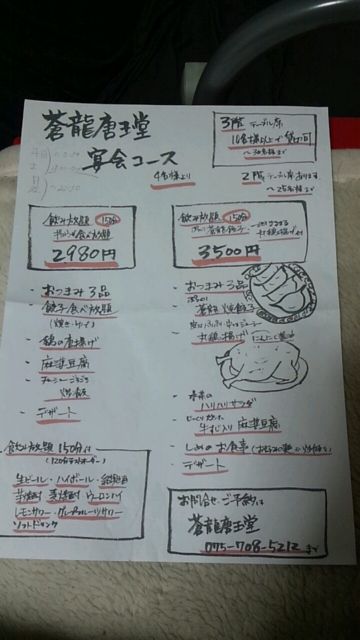 蒼龍唐玉堂
宴会コース
4名様より
3階 テーブル席
16名様以上で貸切可
〜30名様まで
2階 テーブル席あります
〜25名様まで
飲み放題 150分
食べ放題
2980円
飲み放題 150分
3500円
・おつまみ3品
・餃子食べ放題
・鶏の唐揚げ
・麻婆豆腐
炒飯
・デザート
・おつまみ3品
丸鶏揚げ
ハリハリサラダ
牛すじ入り麻婆豆腐
・しめのお食事
・デザート
飲み放題 150分
(120分ラストオーダー)
生ビール・ハイボール・紹興酒
芋焼酎 麦焼酎 ウーロンハイ
レモンサワー・グレープフルーツサワー
ソフトドリンク
お問合せ・ご予約は
蒼龍唐玉堂
075-708-5212 まで